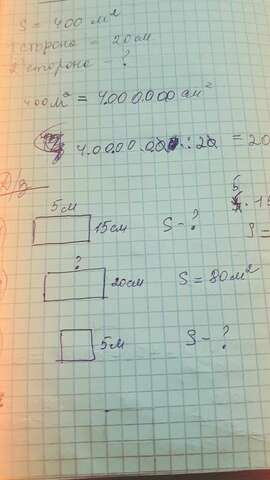 S = 400 м²
1 сторона – 20 см
2 сторона – ?
400 м² = 4.000.000 см²
4.0000.00 : 20 = 20
Д/з
5 см
15 см S – ?
?
20 см S = 80 м²
5 м S – ?